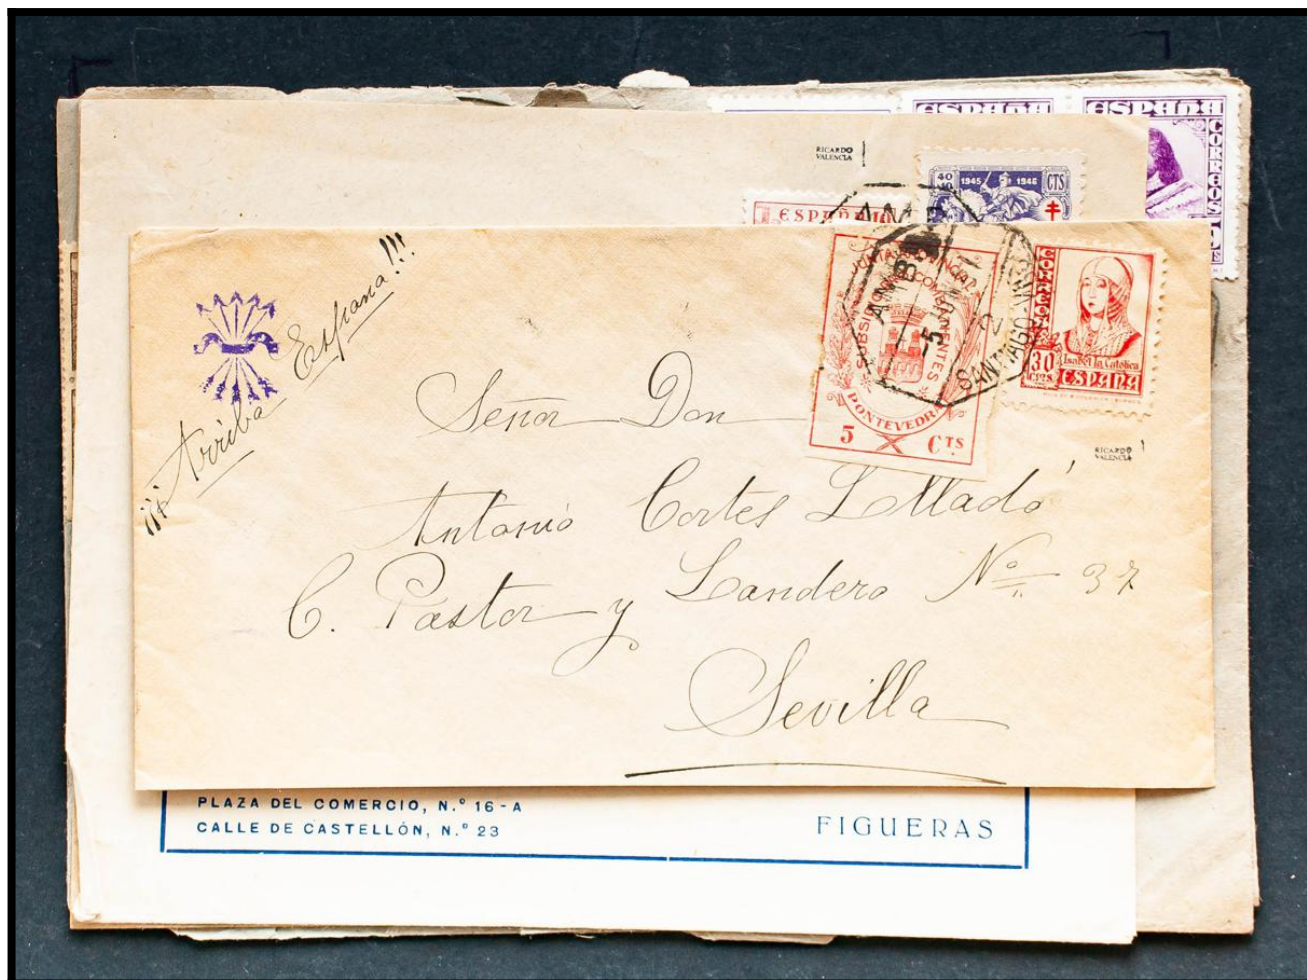 ESPAÑA
ESPAÑA
CORREOS
RICARDO
VALENCIA
40
1945
1946
CTS
ESPAÑA
¡¡¡Arriba España!!!
JUNTA PROVINCIAL
SUBSIDIO COMBATENTES
PONTEVEDRA
5 CTS
AMB
-5
2
SANTIAGO
CORREOS
30
CTS
Isabel la Católica
ESPAÑA
RICARDO
VALENCIA
Señor Don
Antonio Cortes Llladó
C. Pastor y Landero Nº 37
Sevilla
PLAZA DEL COMERCIO, N.º 16-A
CALLE DE CASTELLÓN, N.º 23
FIGUERAS